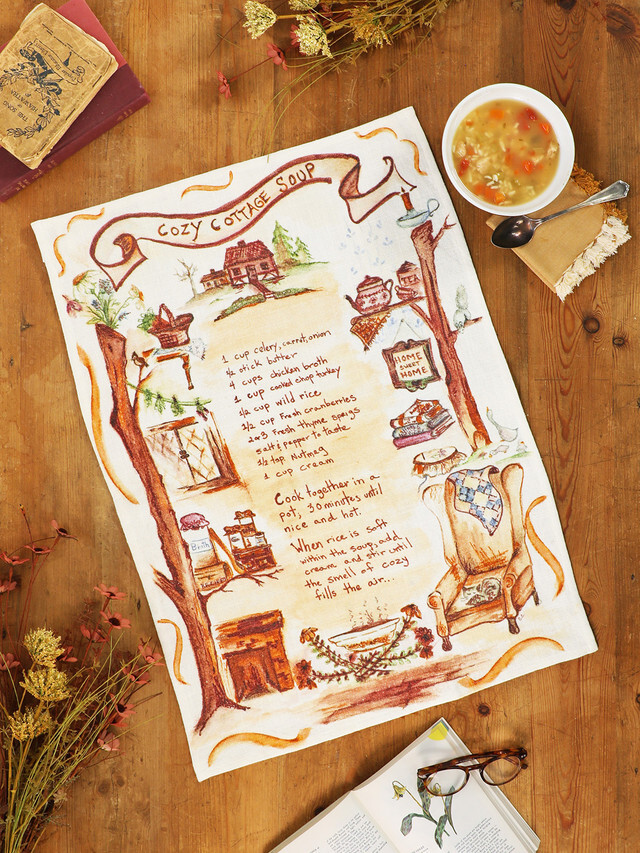 THE SONG
COZY COTTAGE SOUP
TEA
HOME
SWEET
HOME
1 cup celery, carrot, onion
½ stick butter
4 cups chicken broth
1 cup cooked chop turkey
½ cup wild rice
1/2 cup Fresh cranberries
2 or 3 Fresh thyme sprigs
salt & pepper to taste
½ tsp. Nutmeg
1 cup cream
Cook together in a
pot, 30 minutes until
nice and hot.
When rice is soft
within the soup, add
cream and stir until
the smell of cozy
fills the air...
Broth